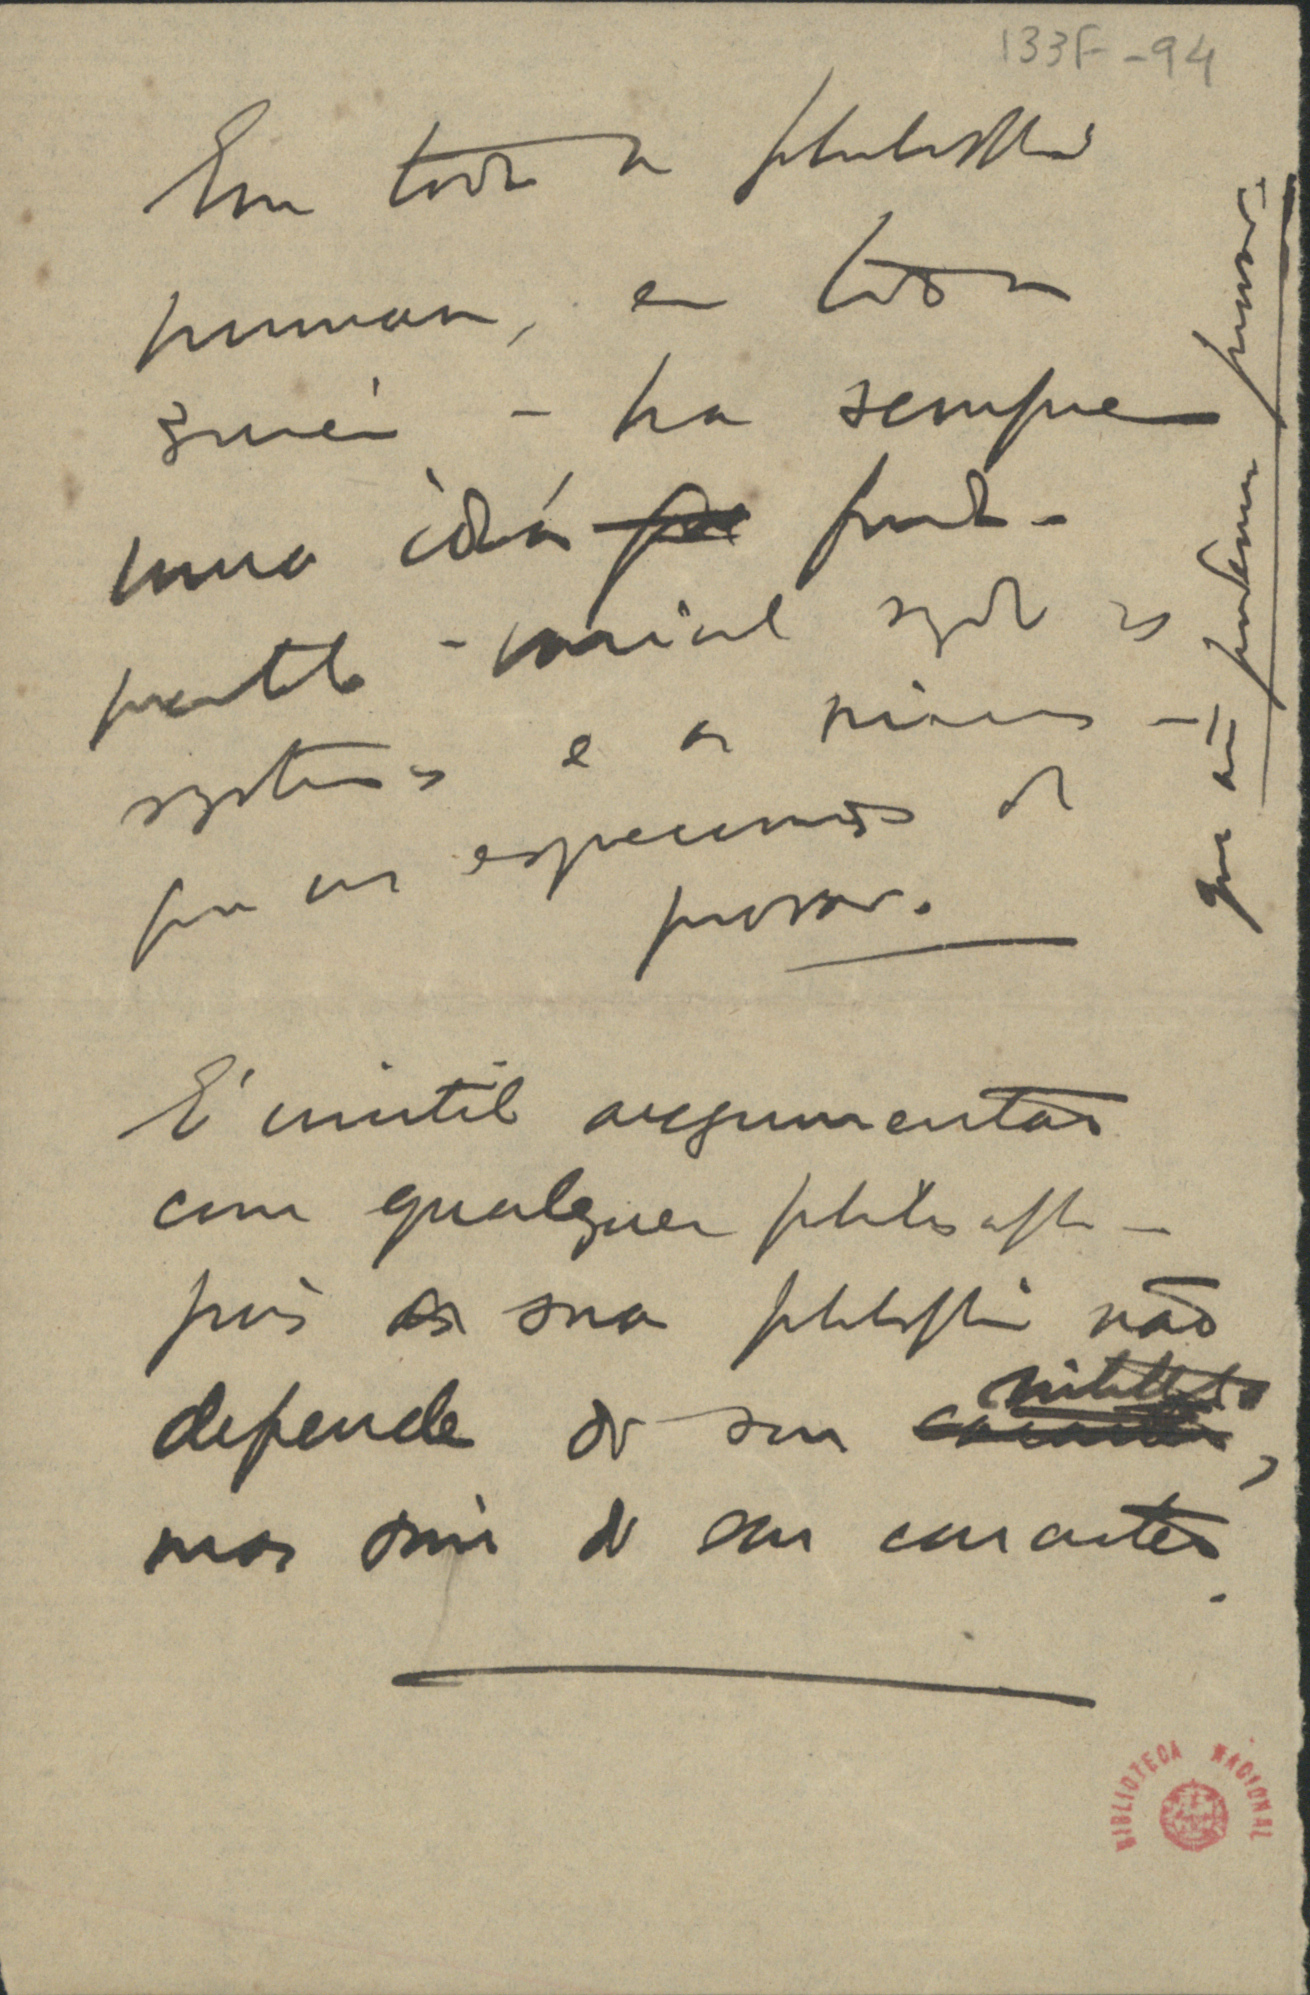 133F-94
Em toda a philosophia
humana, em toda a
sciencia — ha sempre
uma idéa funda-
mental — inicial
systemas e as
que nos esquecemos de
provar.
que não podemos provar.
É inutil argumentar
com qualquer philosopho —
pois a sua philosophia não
depende do seu intellecto,
mas sim do seu caracter.
BIBLIOTECA NACIONAL